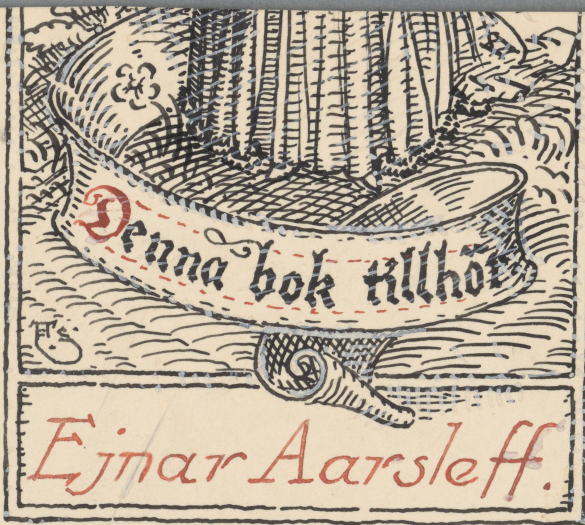 Denna bok tillhör
Ejnar Aarsleff.